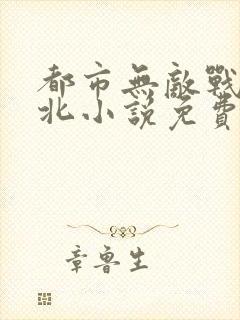 都市無敵戰
北小說免費
章魯生